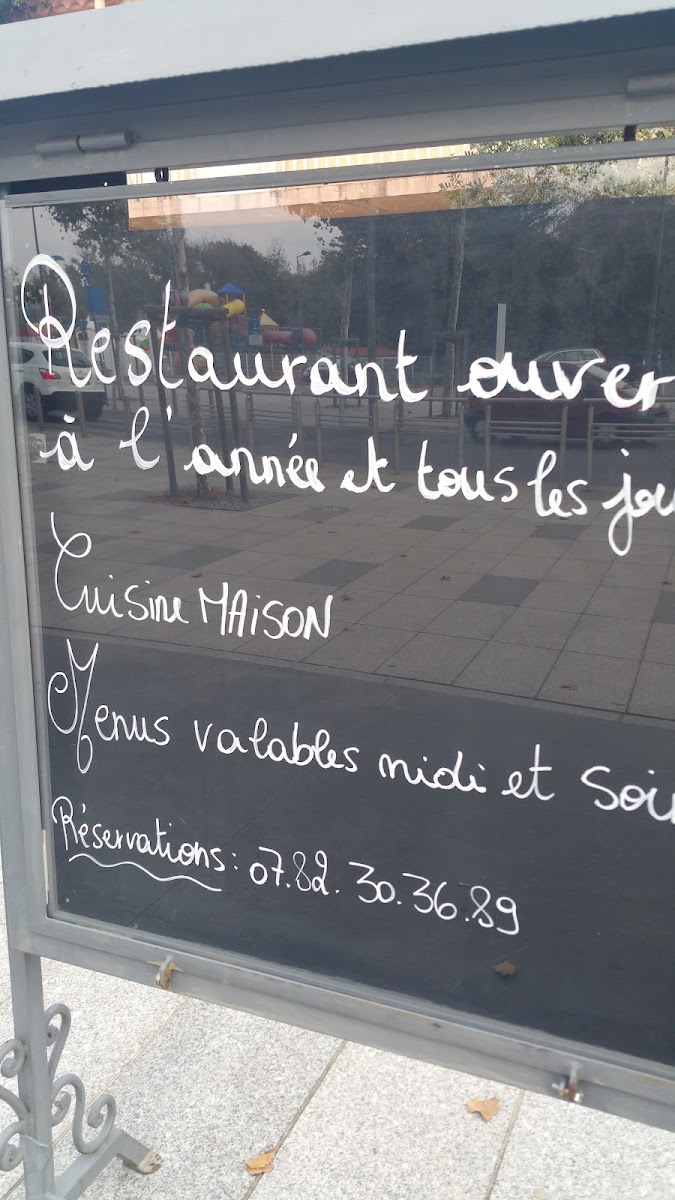 Restaurant ouver
à l'année et tous les jou
Cuisine MAISON
Menus valables midi et Soir
Réservations : 07.82.30.36.89